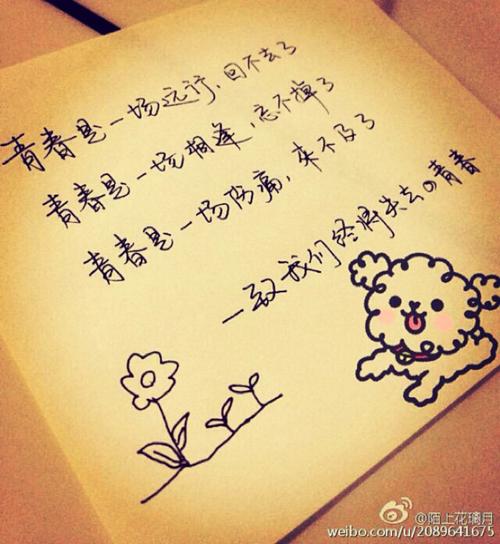 青春是一场远行，回不去了
青春是一场相逢，忘不掉了
青春是一场伤痛，来不及了
一致我们终将失去の青春
@陌上花璃月
weibo.com/u/2089641675